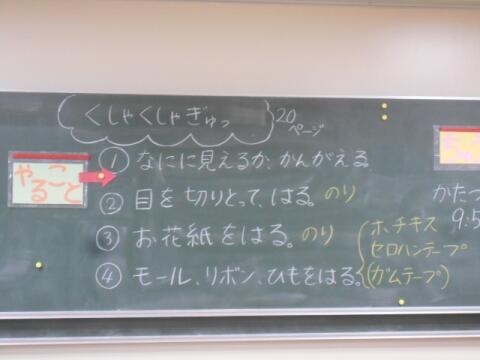 くしゃくしゃぎゅっ 20ページ
やること
① なにに見えるか、かんがえる
② 目を切りとって、はる。のり
③ お花紙をはる。のり
④ モール、リボン、ひもをはる。
ホッチキス
セロハンテープ
(ガムテープ)
かたづ
9:5